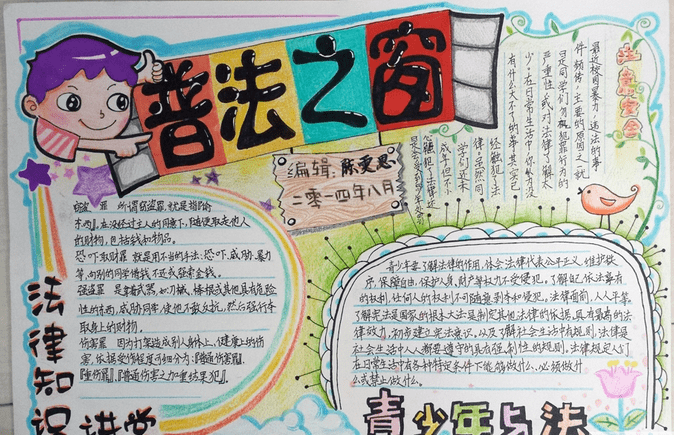 普法之窗
编辑：陈雯思
二零一四年八月
注意安全
最近校园暴力，违法的事
件频传，主要的原因之一就
是同学们忽视犯罪行为的
严重性，或对法律了解太
少。在日常生活中，你认为没
有什么大不了的事，其实已
经触犯了法
律，虽然同
学们还未
成年，但不
窃盗罪 所谓窃盗罪，就是指『偷
东西』，在没经过主人的同意下，随便取走他人
的财物，包括钱和物品。
恐吓取财罪 就是用不当的手法：恐吓、威胁、暴力
等，向别的同学借钱不还或强索金钱。
强盗罪 是拿武器，如刀械、棒棍或其他具有危险
性的东西，威胁同学，使他不敢反抗，然后强行夺
取身上的财物。
伤害罪 因为打架造成别人身体上、健康上的伤
害，依据受伤程度可细分为：『普通伤害罪』、
『重伤罪』、『普通伤害之加重结果犯』。
法律知识讲堂
青少年要了解法律的作用，体会法律代表公平正义、维护秩
序、保障自由，保护人身、财产等权力不受侵犯，了解自己依法享有
的权利，任何人的权利不可随意剥夺和侵犯，法律面前，人人平等。
了解宪法是国家的根本大法是制定其他法律的依据，具有最高的法
律效力，初步建立宪法意识，以及了解社会生活中有规则，法律是
社会生活中人人都要遵守的具有强制性的规则。法律规定人们
在日常生活中有各种特定条件下能够做什么、必须做什
么或禁止做什么。
青少年与法